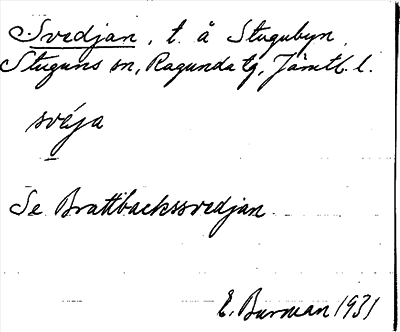 Svedjan, t. å Stugubyn
Stuguns sn, Ragunda tg, Jämtl. l.
svéja
Se Brattbackssvedjan
E. Burman 1931